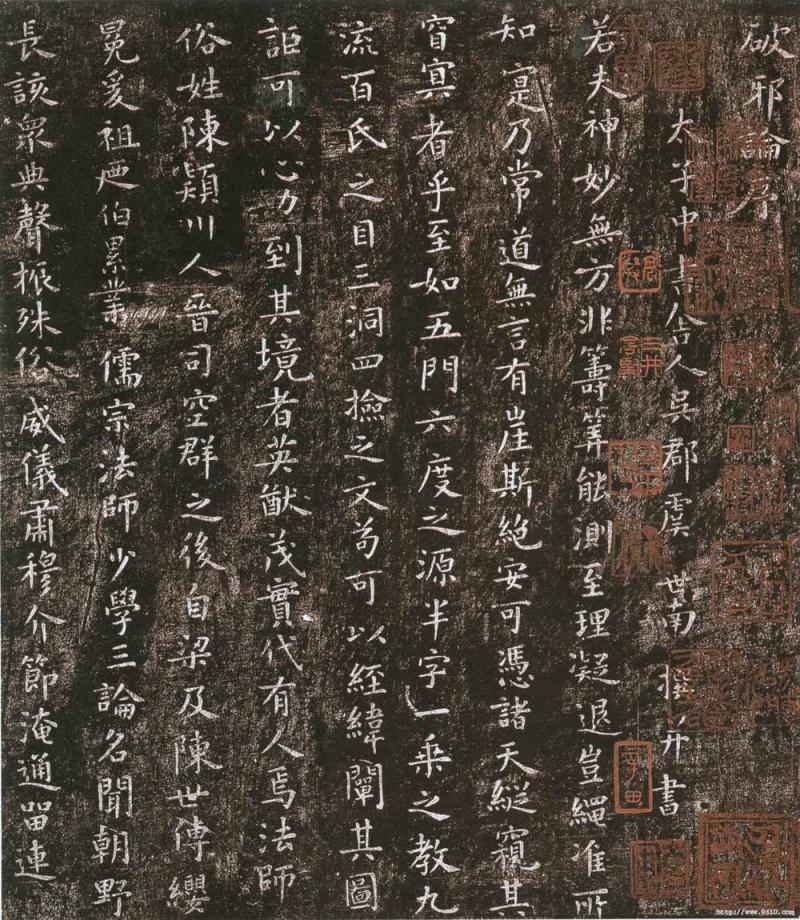 破邪論序
太子中書舍人吳郡虞世南撰并書
若夫神妙無方非籌筭能測至理凝退豈繩准所
知寔乃常道無言有崖斯絶安可憑諸天縱窺其
窅冥者乎至如五門六度之源半字一乘之教九
流百氏之目三洞四撿之文苟可以經緯闡其圖
詎可以心力到其境者英猷茂實代有人焉法師
俗姓陳潁川人晉司空群之後自梁及陳世傳纓
冕爰祖及伯累業儒宗法師少學三論名聞朝野
長該衆典聲振殊俗威儀肅穆介節淹通留連
http://www.9610.com